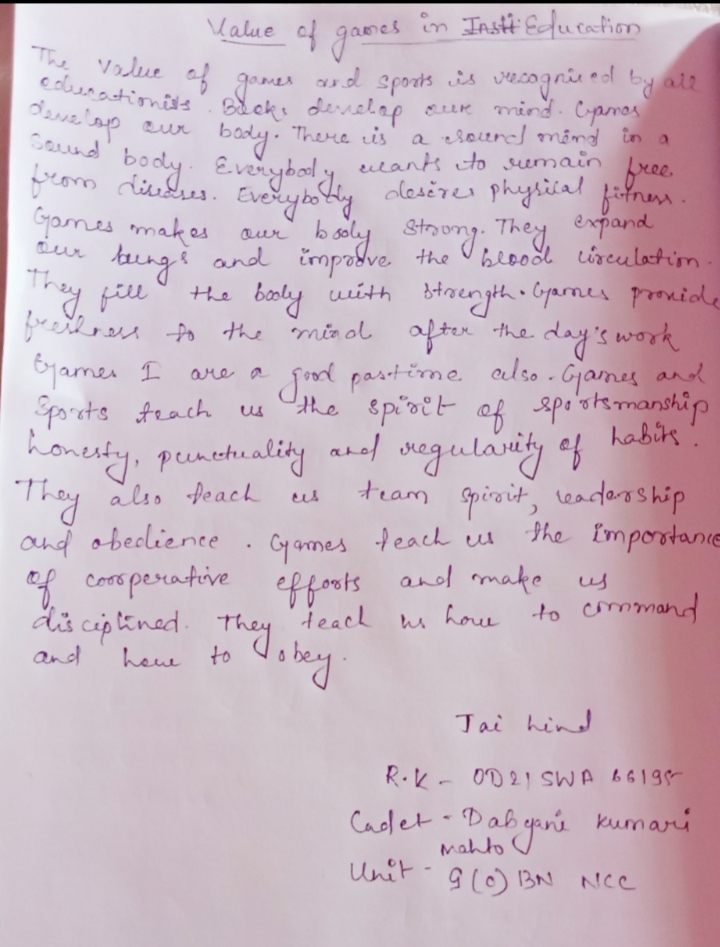 Value of games in Education
The value of games and sports is recognised by all
educationists. Books develop our mind. Games
develop our body. There is a sound mind in a
sound body. Everybody wants to remain free
from diseases. Everybody desires physical fitness.
Games makes our body strong. They expand
our lungs and improve the blood circulation.
They fill the body with strength. Games provide
freshness to the mind after the day's work
Games I are a good pastime also. Games and
Sports teach us the spirit of sportsmanship
honesty, punctuality and regularity of habits.
They also teach us team spirit, leadership
and obedience. Games teach us the importance
of cooperative efforts and make us
disciplined. They teach us how to command
and how to obey.
Jai hind
R.K - OD21SWA 66195
Cadet - Dabyani Kumari
Mahto
Unit - 9(O) BN NCC